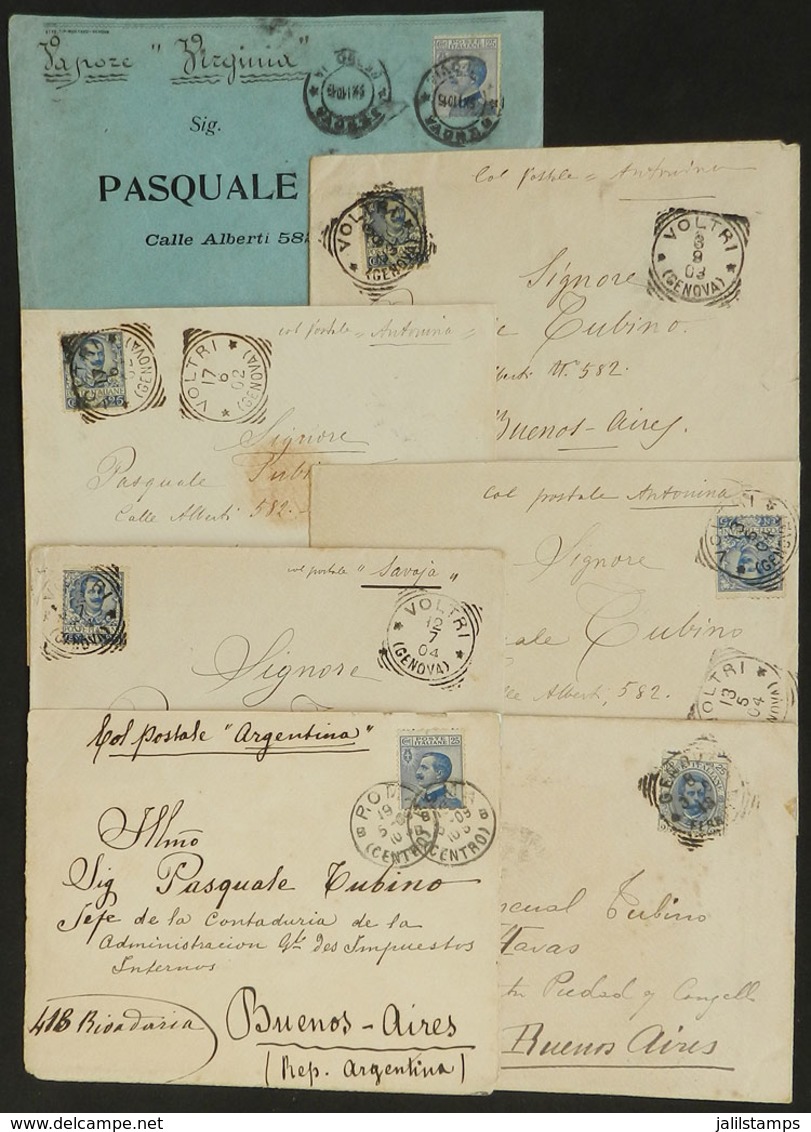 Vapore "Virginia"
Sig.
PASQUALE
Calle Alberti 582
GENOVA
25
Col postale "Antonina
VOLTRI
8
9
03
(GENOVA)
Signore
Tubino.
Alberti N.º 582.
Buenos-Aires.
col postale "Antonina"
VOLTRI
17
6
02
(GENOVA)
25
Signore
Pasquale Tubi
Calle Alberti 582.
Col postale Antonina
Signore
Tubino
Calle Alberti, 582.
VOLTRI
13
5
04
col postale "Savoja"
VOLTRI
12
7
04
(GENOVA)
Signore
Col postale "Argentina"
POSTE
ITALIANE
25
ROMA
19
(CENTRO)
Illmo
Sig Pasquale Tubino
Jefe de la Contaduria de la
Administracion Gl. des Impuestos
Internos
418 Rivadavia
Buenos-Aires
(Rep. Argentina)
25
Tubino
Piedad y
Buenos Aires
jalilstamps